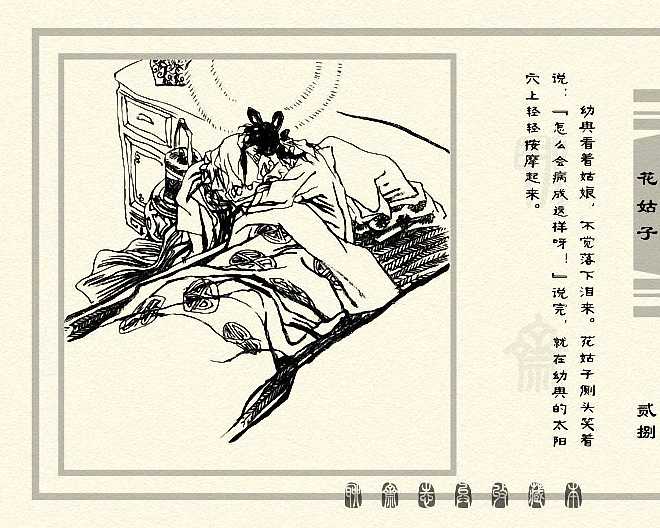 幼舆看着姑娘，不觉落下泪来。花姑子侧头笑着
说：“怎么会病成这样呀！”说完，就在幼舆的太阳
穴上轻轻按摩起来。
花姑子
贰捌
聊斋志异收藏本